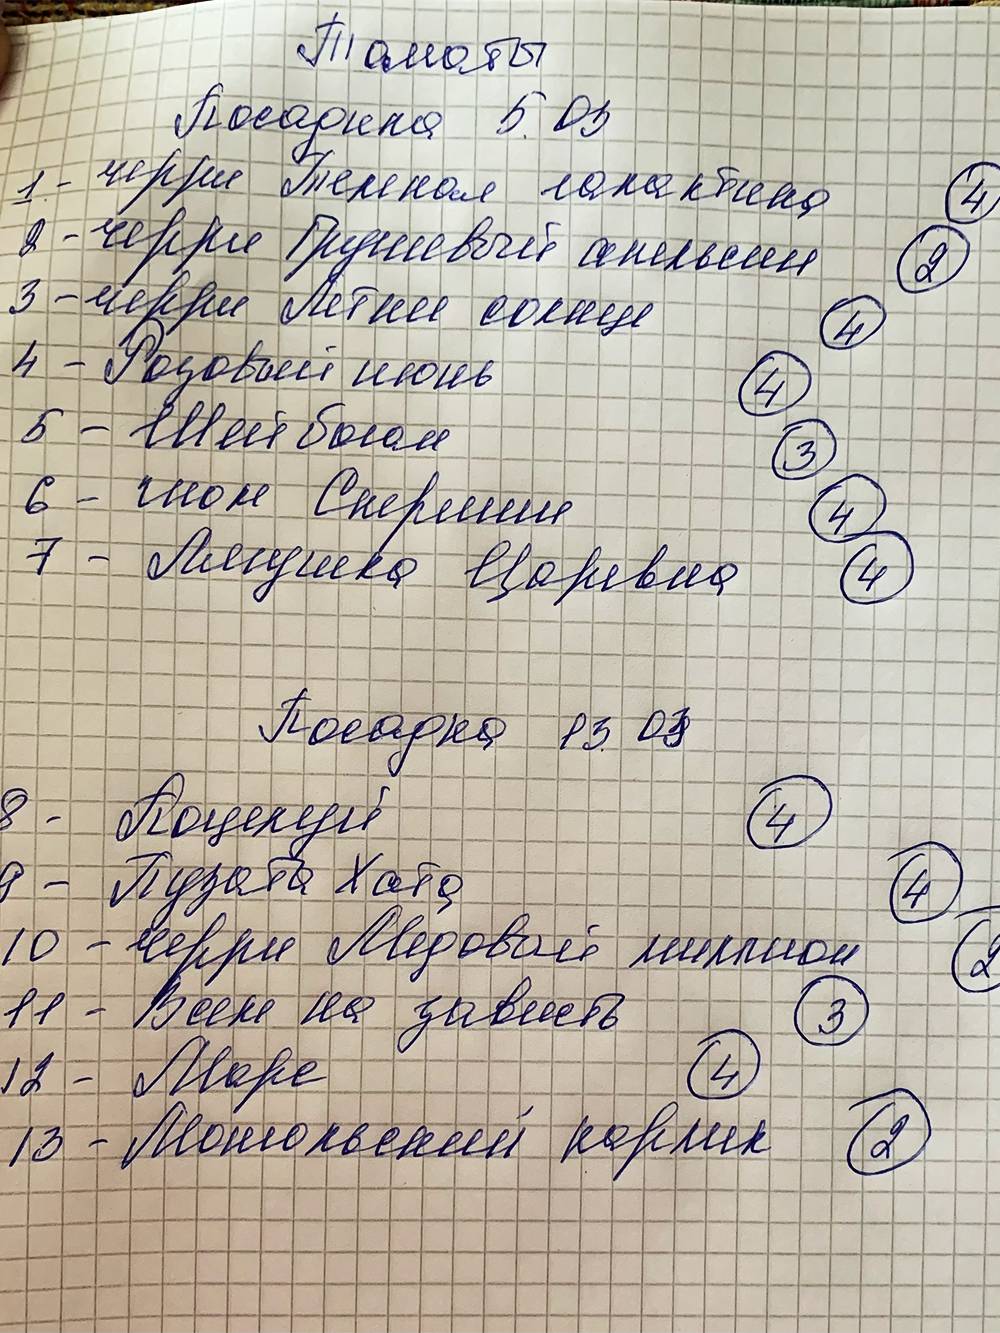 Томаты
Посадка 5.03
1 - черри Темная галактика 4
2 - черри Грушевый апельсин 2
3 - черри Летнее солнце 4
4 - Розовый июнь 4
5 - Шейбогам 3
6 - гном Скерими 4
7 - Лягушка Царевна 4
Посадка 13.03
8 - Поцелуй 4
9 - Пузата Хата 4
10 - черри Медовый миллион 2
11 - Всем на зависть 3
12 - Марс 4
13 - Монгольский карлик 2